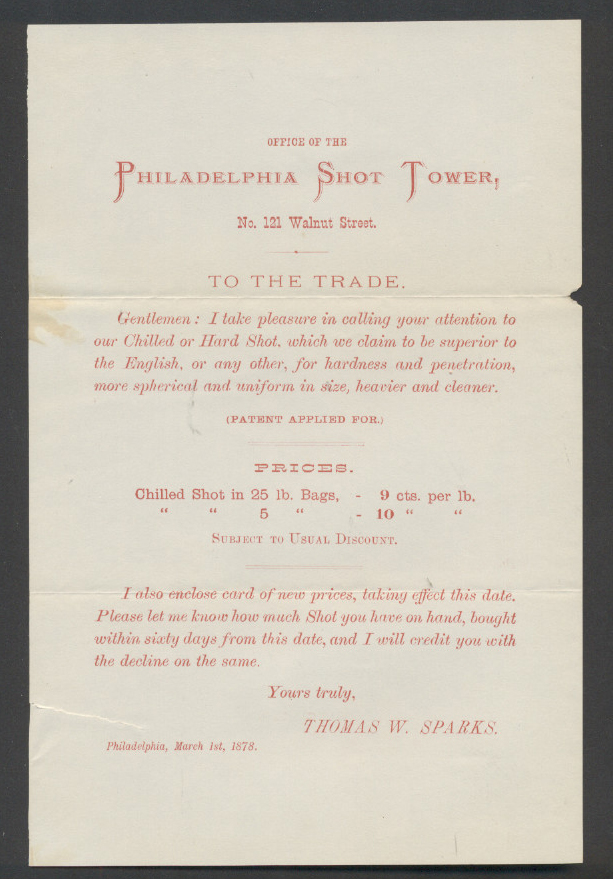 OFFICE OF THE
PHILADELPHIA SHOT TOWER,
No. 121 Walnut Street.
TO THE TRADE.
Gentlemen: I take pleasure in calling your attention to
our Chilled or Hard Shot, which we claim to be superior to
the English, or any other, for hardness and penetration,
more spherical and uniform in size, heavier and cleaner.
(PATENT APPLIED FOR.)
PRICES.
Chilled Shot in 25 lb. Bags, - 9 cts. per lb.
" " 5 " - 10 " "
SUBJECT TO USUAL DISCOUNT.
I also enclose card of new prices, taking effect this date.
Please let me know how much Shot you have on hand, bought
within sixty days from this date, and I will credit you with
the decline on the same.
Yours truly,
THOMAS W. SPARKS.
Philadelphia, March 1st, 1878.